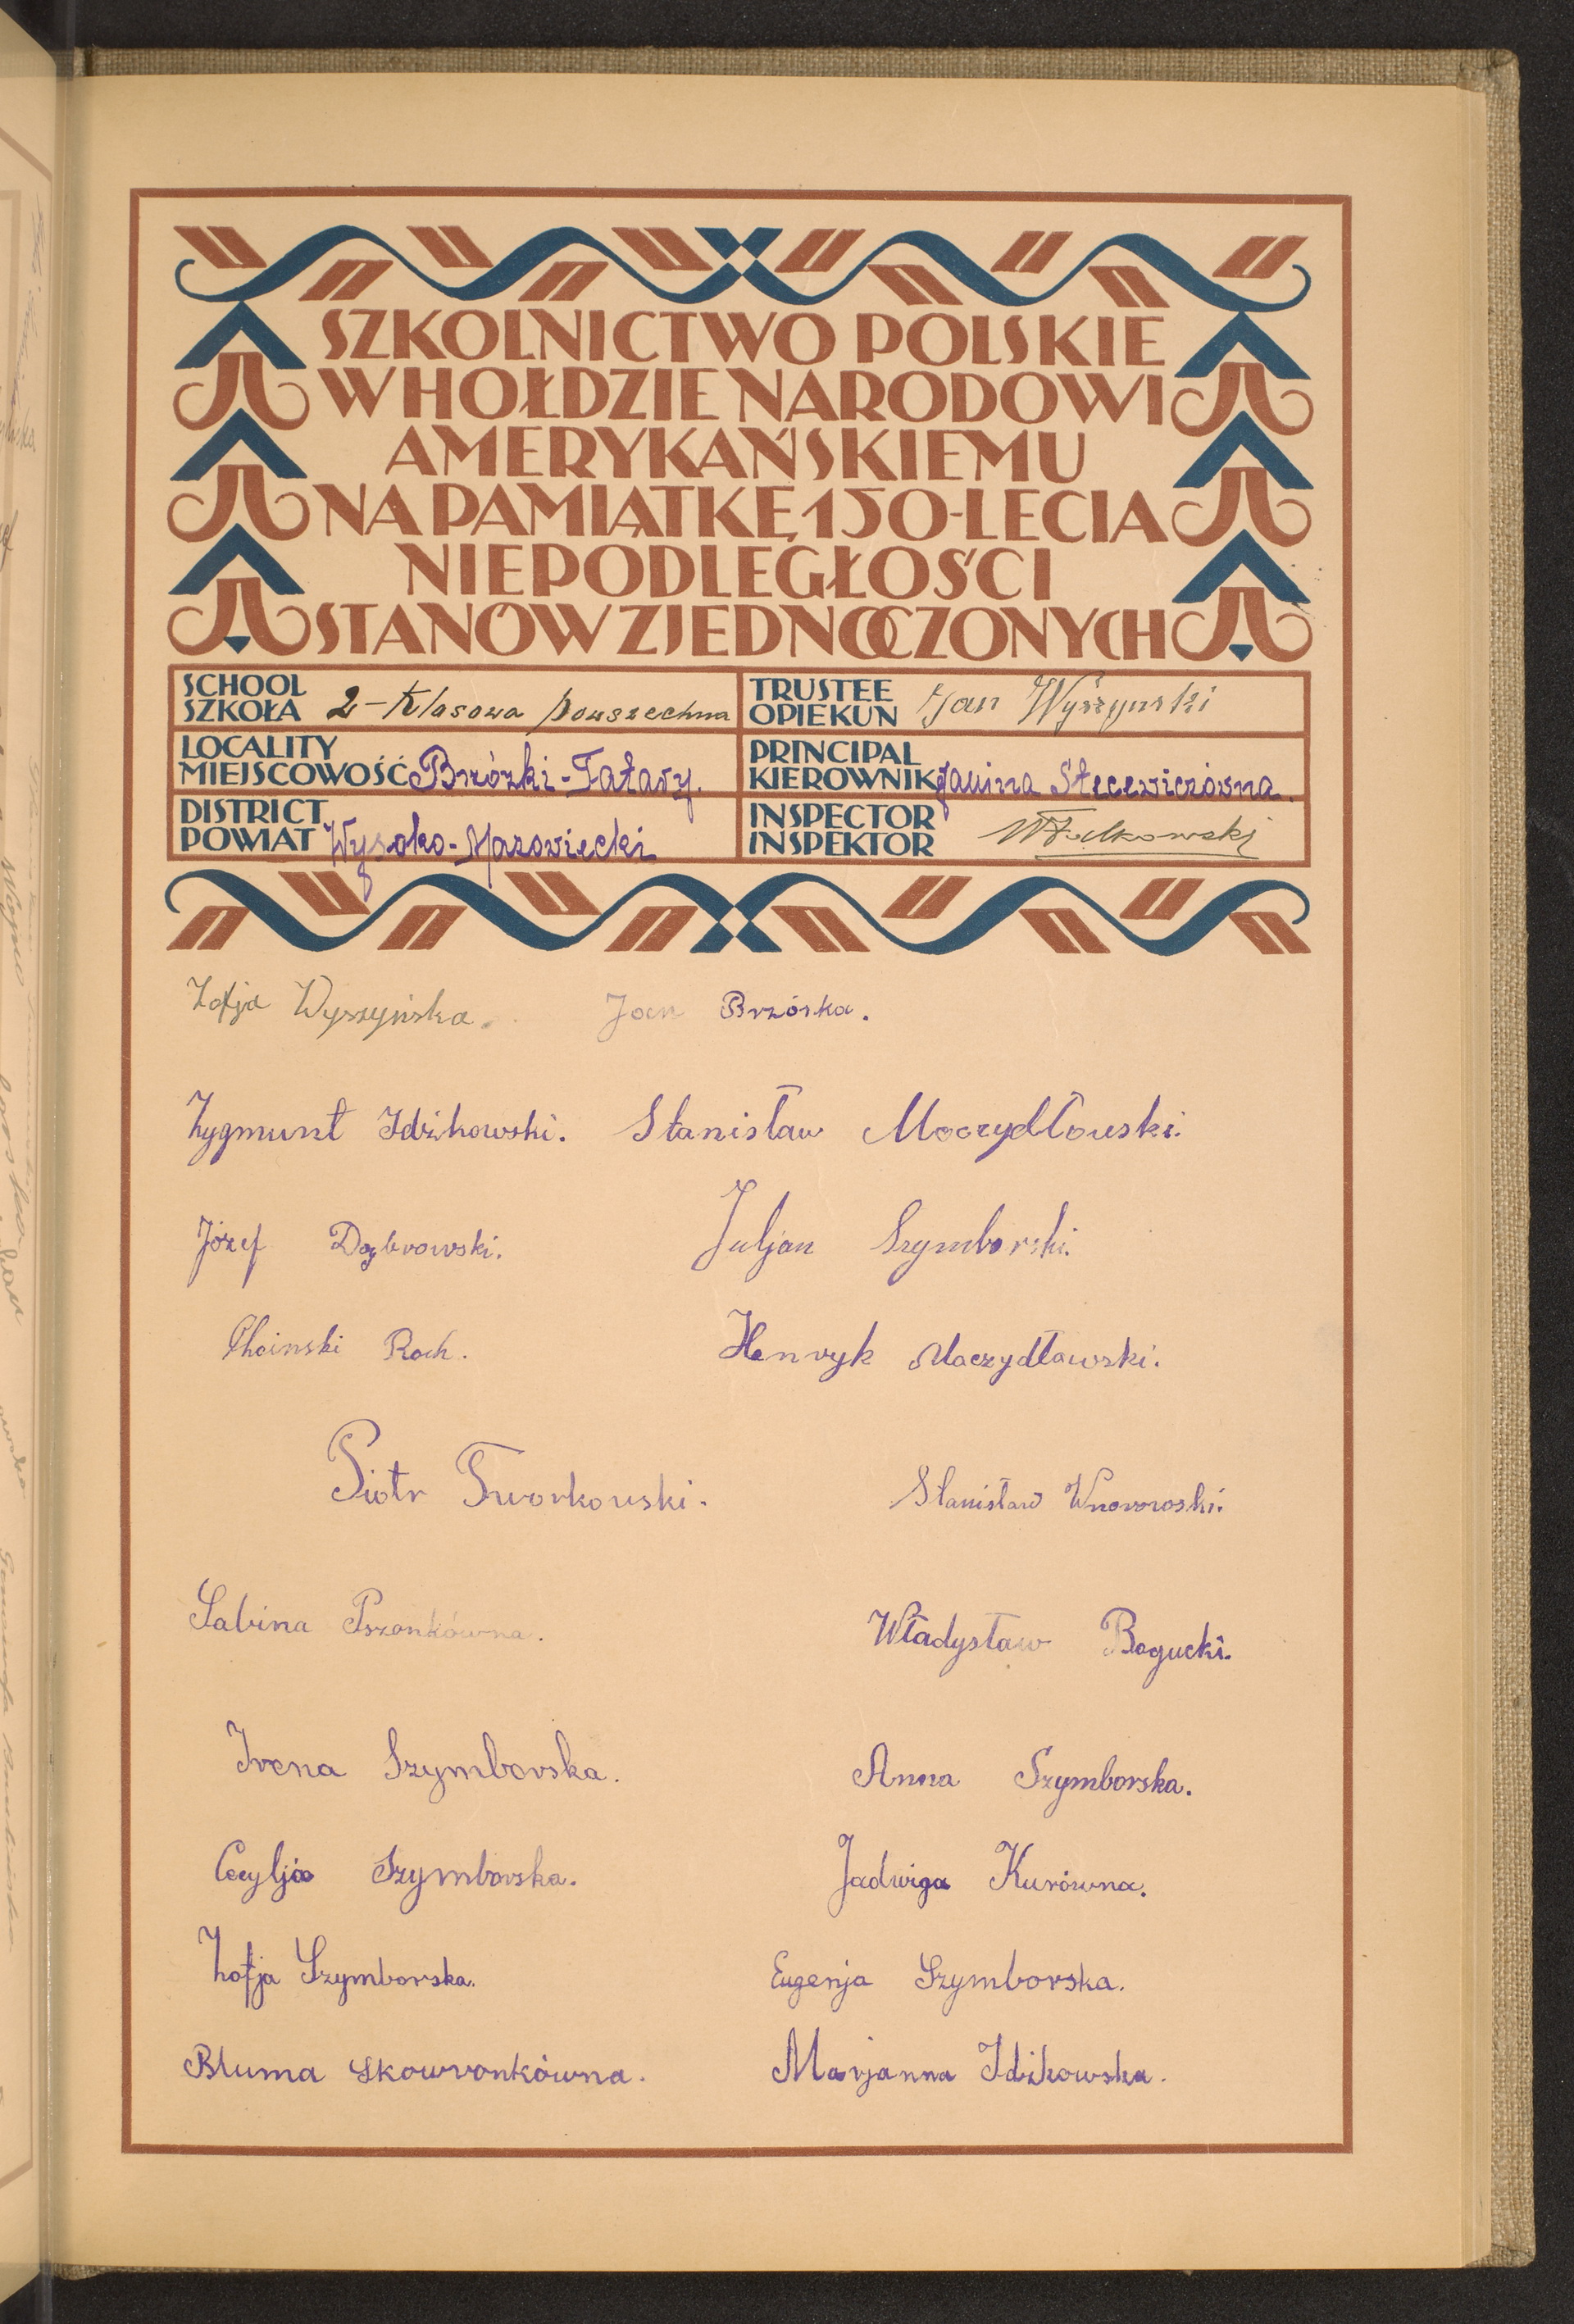 SZKOLNICTWO POLSKIE
W HOŁDZIE NARODOWI
AMERYKAŃSKIEMU
NA PAMIĄTKĘ 150-LECIA
NIEPODLEGŁOŚCI
STANÓW ZJEDNOCZONYCH
SCHOOL
SZKOŁA 2-Klasowa powszechna
TRUSTEE
OPIEKUN Jan Wyszyński
LOCALITY
MIEJSCOWOŚĆ Brzózki-Tatary.
PRINCIPAL
KIEROWNIK Janina Stecewiczówna.
DISTRICT
POWIAT Wysoko-Mazowiecki
INSPECTOR
INSPEKTOR
Zofja Wyszyńska. Jan Brzóska.
Zygmunt Idźkowski. Stanisław Moczydłowski.
Józef Dąbrowski. Juljan Szymborski.
Choinski Roch. Henryk Moczydławski.
Piotr Tworkowski. Stanisław Wnororoski.
Sabina Pszonkówna. Władysław Bogucki.
Irena Szymborska. Anna Szymborska.
Cecylja Szymborska. Jadwiga Kurówna.
Zofja Szymborska. Eugenja Szymborska.
Bluma Skowronkówna. Marjanna Idźkowska.